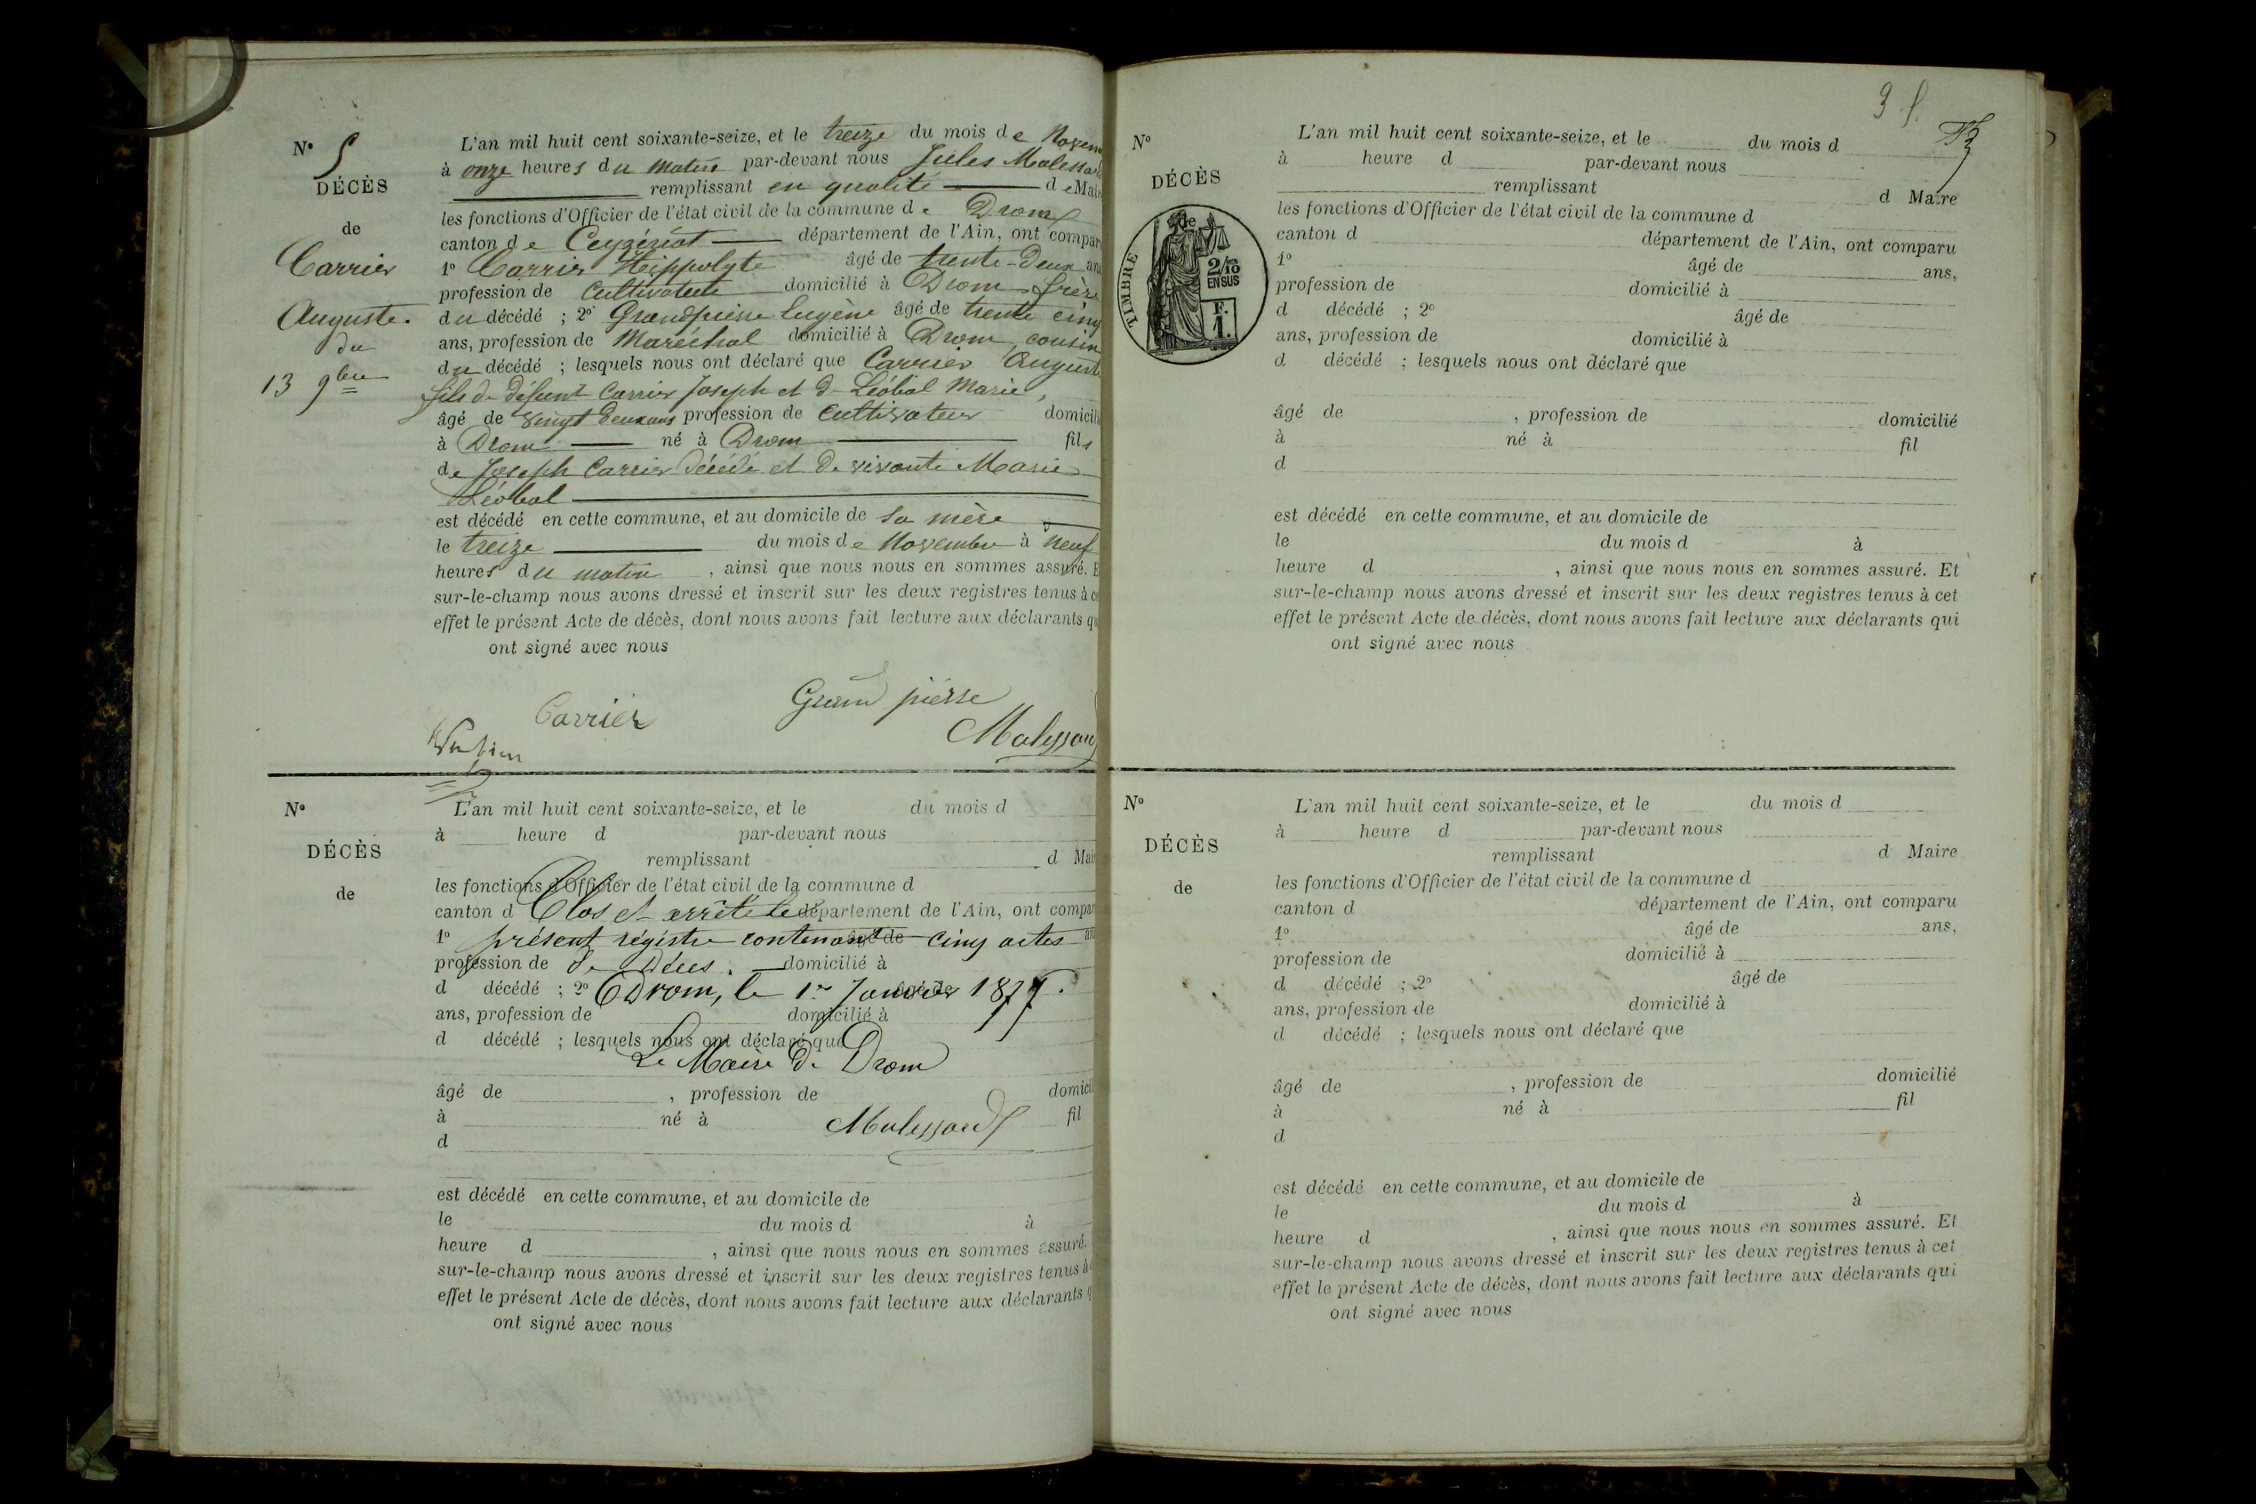 N° 5
DÉCÈS
de
Carrier
Auguste.
du
13 9bre
L'an mil huit cent soixante-seize, et le treize du mois de Novem
à onze heures du matin par-devant nous Jules Malessar
remplissant en qualité de Mai
les fonctions d'Officier de l'état civil de la commune de Drom
canton de Ceyzériat département de l'Ain, ont compar
1° Carrier Hippolyte âgé de trente-deux an
profession de cultivateur domicilié à Drom frère
du décédé ; 2° Grandpierre Eugène âgé de trente cinq
ans, profession de Maréchal domicilié à Drom, cousin
du décédé ; lesquels nous ont déclaré que Carrier Auguste
fils de défunt Carrier Joseph et de Léobal Marie,
âgé de vingt deux ans profession de cultivateur domicili
à Drom né à Drom fils
de Joseph Carrier décédé et de vivante Marie
Léobal
est décédé en cette commune, et au domicile de sa mère
le treize du mois de Novembre à neuf
heures du matin , ainsi que nous nous en sommes assuré. E
sur-le-champ nous avons dressé et inscrit sur les deux registres tenus à ce
effet le présent Acte de décès, dont nous avons fait lecture aux déclarants qu
ont signé avec nous
Carrier Grand pierre
Malessard
N°
DÉCÈS
de
L'an mil huit cent soixante-seize, et le du mois d
à heure d par-devant nous
remplissant d Mai
les fonctions d'Officier de l'état civil de la commune d
canton d Clos et arrêté le département de l'Ain, ont compar
1° présent régistre contenant âgé de cinq actes an
profession de de Décès. domicilié à
d décédé ; 2° Drom, le 1er Janvier 1877.
ans, profession de domicilié à
d décédé ; lesquels nous ont déclaré que
Le Maire de Drom
âgé de , profession de domicil
à né à Malessard fil
d
est décédé en cette commune, et au domicile de
le du mois d à
heure d , ainsi que nous nous en sommes assuré.
sur-le-champ nous avons dressé et inscrit sur les deux registres tenus à
effet le présent Acte de décès, dont nous avons fait lecture aux déclarants q
ont signé avec nous
3 f.
N°
DÉCÈS
de
TIMBRE
2/10
EN SUS
F.
1.
L'an mil huit cent soixante-seize, et le du mois d
à heure d par-devant nous
remplissant d Maire
les fonctions d'Officier de l'état civil de la commune d
canton d département de l'Ain, ont comparu
1° âgé de ans,
profession de domicilié à
d décédé ; 2° âgé de
ans, profession de domicilié à
d décédé ; lesquels nous ont déclaré que
âgé de , profession de domicilié
à né à fil
d
est décédé en cette commune, et au domicile de
le du mois d à
heure d , ainsi que nous nous en sommes assuré. Et
sur-le-champ nous avons dressé et inscrit sur les deux registres tenus à cet
effet le présent Acte de décès, dont nous avons fait lecture aux déclarants qui
ont signé avec nous
N°
DÉCÈS
de
L'an mil huit cent soixante-seize, et le du mois d
à heure d par-devant nous
remplissant d Maire
les fonctions d'Officier de l'état civil de la commune d
canton d département de l'Ain, ont comparu
1° âgé de ans,
profession de domicilié à
d décédé ; 2° âgé de
ans, profession de domicilié à
d décédé ; lesquels nous ont déclaré que
âgé de , profession de domicilié
à né à fil
d
est décédé en cette commune, et au domicile de
le du mois d à
heure d , ainsi que nous nous en sommes assuré. Et
sur-le-champ nous avons dressé et inscrit sur les deux registres tenus à cet
effet le présent Acte de décès, dont nous avons fait lecture aux déclarants qui
ont signé avec nous